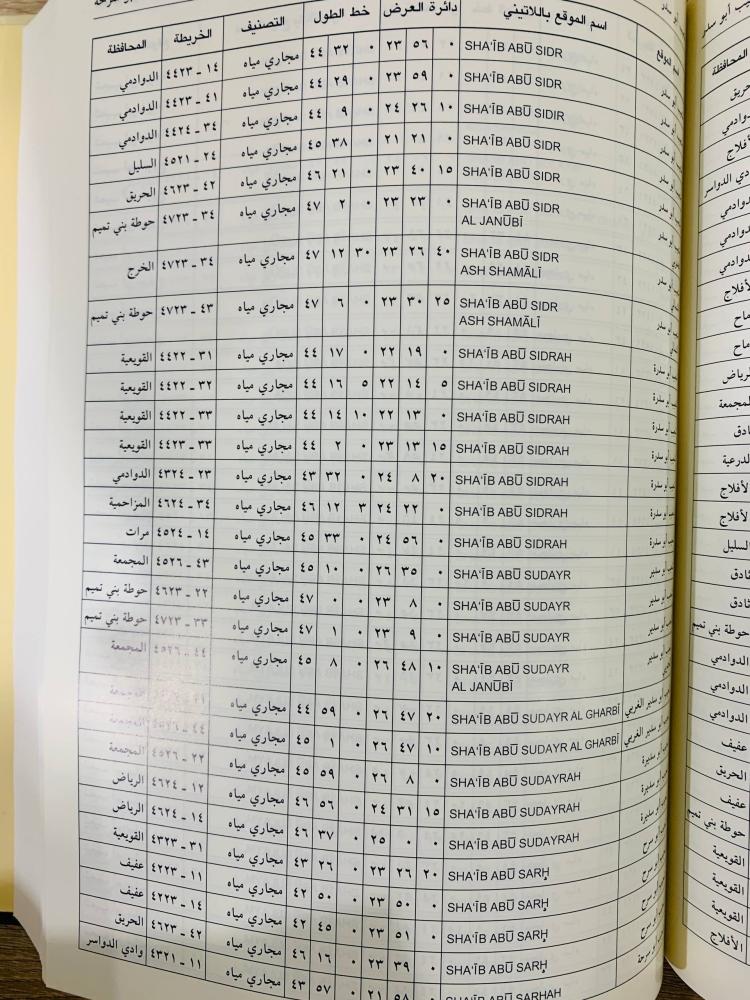 اسم الموقع باللاتيني دائرة العرض خط الطول التصنيف الخريطة المحافظة
SHA'ĪB ABŪ SIDR ٠ ٥٦ ٢٣ ٠ ٣٢ ٤٤ مجاري مياه ١٤ - ٤٤٢٣ الدوادمي
SHA'ĪB ABŪ SIDR ٠ ٥٩ ٢٣ ٠ ٢٩ ٤٤ مجاري مياه ٤١ - ٤٤٢٣ الدوادمي
SHA'ĪB ABŪ SIDIR ١٠ ٢٦ ٢٤ ٠ ٩ ٤٤ مجاري مياه ٣٤ - ٤٤٢٤ الدوادمي
SHA'ĪB ABŪ SIDR ٠ ٢١ ٢١ ٠ ٣٨ ٤٥ مجاري مياه ٢٤ - ٤٥٢١ السليل
SHA'ĪB ABŪ SIDR ١٥ ٤٠ ٢٣ ٠ ٢١ ٤٦ مجاري مياه ٤٢ - ٤٦٢٣ الحريق
SHA'ĪB ABŪ SIDR ٠ ٢٣ ٢٣ ٠ ٢ ٤٧ مجاري مياه ٣٤ - ٤٧٢٣ حوطة بني تميم
AL JANŪBĪ
SHA'ĪB ABŪ SIDR ٤٠ ٢٦ ٢٣ ٣٠ ١٢ ٤٧ مجاري مياه ٣٤ - ٤٧٢٣ الخرج
ASH SHAMĀLĪ
SHA'ĪB ABŪ SIDR ٢٥ ٣٠ ٢٣ ٠ ٦ ٤٧ مجاري مياه ٤٣ - ٤٧٢٣ حوطة بني تميم
ASH SHAMĀLĪ
SHA'ĪB ABŪ SIDRAH ٠ ١٩ ٢٢ ٠ ١٧ ٤٤ مجاري مياه ٣١ - ٤٤٢٢ القويعية
SHA'ĪB ABŪ SIDRAH ٥ ١٤ ٢٢ ٥ ١٦ ٤٤ مجاري مياه ٣٢ - ٤٤٢٢ القويعية
SHA'ĪB ABŪ SIDRAH ٠ ١٣ ٢٢ ١٠ ١٤ ٤٤ مجاري مياه ٣٣ - ٤٤٢٢ القويعية
SHA'ĪB ABŪ SIDRAH ١٥ ١٣ ٢٣ ٠ ٢ ٤٤ مجاري مياه ٣٣ - ٤٤٢٣ القويعية
SHA'ĪB ABŪ SIDRAH ٢٠ ٨ ٢٤ ٠ ٣٢ ٤٣ مجاري مياه ٢٣ - ٤٣٢٤ الدوادمي
SHA'ĪB ABŪ SIDRAH ٠ ٢٢ ٢٤ ٣ ١٢ ٤٦ مجاري مياه ٣٤ - ٤٦٢٤ المزاحمية
SHA'ĪB ABŪ SIDRAH ٠ ٥٦ ٢٤ ٠ ٣٣ ٤٥ مجاري مياه ١٤ - ٤٥٢٤ مرات
SHA'ĪB ABŪ SUDAYR ٠ ٣٥ ٢٦ ٠ ١٠ ٤٥ مجاري مياه ٤٣ - ٤٥٢٦ المجمعة
SHA'ĪB ABŪ SUDAYR ٠ ٨ ٢٣ ٠ ٠ ٤٧ مجاري مياه ٢٢ - ٤٦٢٣ حوطة بني تميم
SHA'ĪB ABŪ SUDAYR ٠ ٩ ٢٣ ٠ ١ ٤٧ مجاري مياه ٣٣ - ٤٧٢٣ حوطة بني تميم
SHA'ĪB ABŪ SUDAYR ١٠ ٤٨ ٢٦ ٠ ٨ ٤٥ مجاري مياه ٤٤ - ٤٥٢٦ المجمعة
AL JANŪBĪ
SHA'ĪB ABŪ SUDAYR AL GHARBĪ ٢٠ ٤٧ ٢٦ ٠ ٥٩ ٤٤ مجاري مياه المجمعة
SHA'ĪB ABŪ SUDAYR AL GHARBĪ ١٠ ٤٧ ٢٦ ٠ ١ ٤٥ مجاري مياه ٤٤ - ٤٥٢٦ المجمعة
SHA'ĪB ABŪ SUDAYRAH ٠ ٨ ٢٦ ٠ ٥٩ ٤٥ مجاري مياه ٢٢ - ٤٥٢٦ المجمعة
SHA'ĪB ABŪ SUDAYRAH ١٥ ٣١ ٢٤ ٠ ٥٦ ٤٦ مجاري مياه ١٢ - ٤٦٢٤ الرياض
SHA'ĪB ABŪ SUDAYRAH ٠ ٠ ٢٥ ٠ ٣٧ ٤٦ مجاري مياه ١٤ - ٤٦٢٤ الرياض
SHA'ĪB ABŪ SARḤ ٢٠ ٢٦ ٢٣ ٠ ٢٦ ٤٣ مجاري مياه ٣١ - ٤٣٢٣ القويعية
SHA'ĪB ABŪ SARḤ ٠ ٥٠ ٢٣ ٠ ٥٠ ٤٢ مجاري مياه ١١ - ٤٢٢٣ عفيف
SHA'ĪB ABŪ SARḤ ٠ ٥١ ٢٣ ٠ ٤٥ ٤٢ مجاري مياه ١٤ - ٤٢٢٣ عفيف
SHA'ĪB ABŪ SARḤ ٠ ٣٩ ٢٣ ٠ ١٦ ٤٦ مجاري مياه ٤٢ - ٤٦٢٣ الحريق
SARHAH ٠ ٥٨ ٢١ ٠ ٥٧ ٤٣ مجاري مياه ١١ - ٤٣٢١ وادي الدواسر
المحافظة
السليل
حوطة بني تميم
الدوادمي
الدوادمي
الدوادمي
عفيف
الحريق
عفيف
حوطة بني تميم
القويعية
القويعية
القويعية
الأفلاج